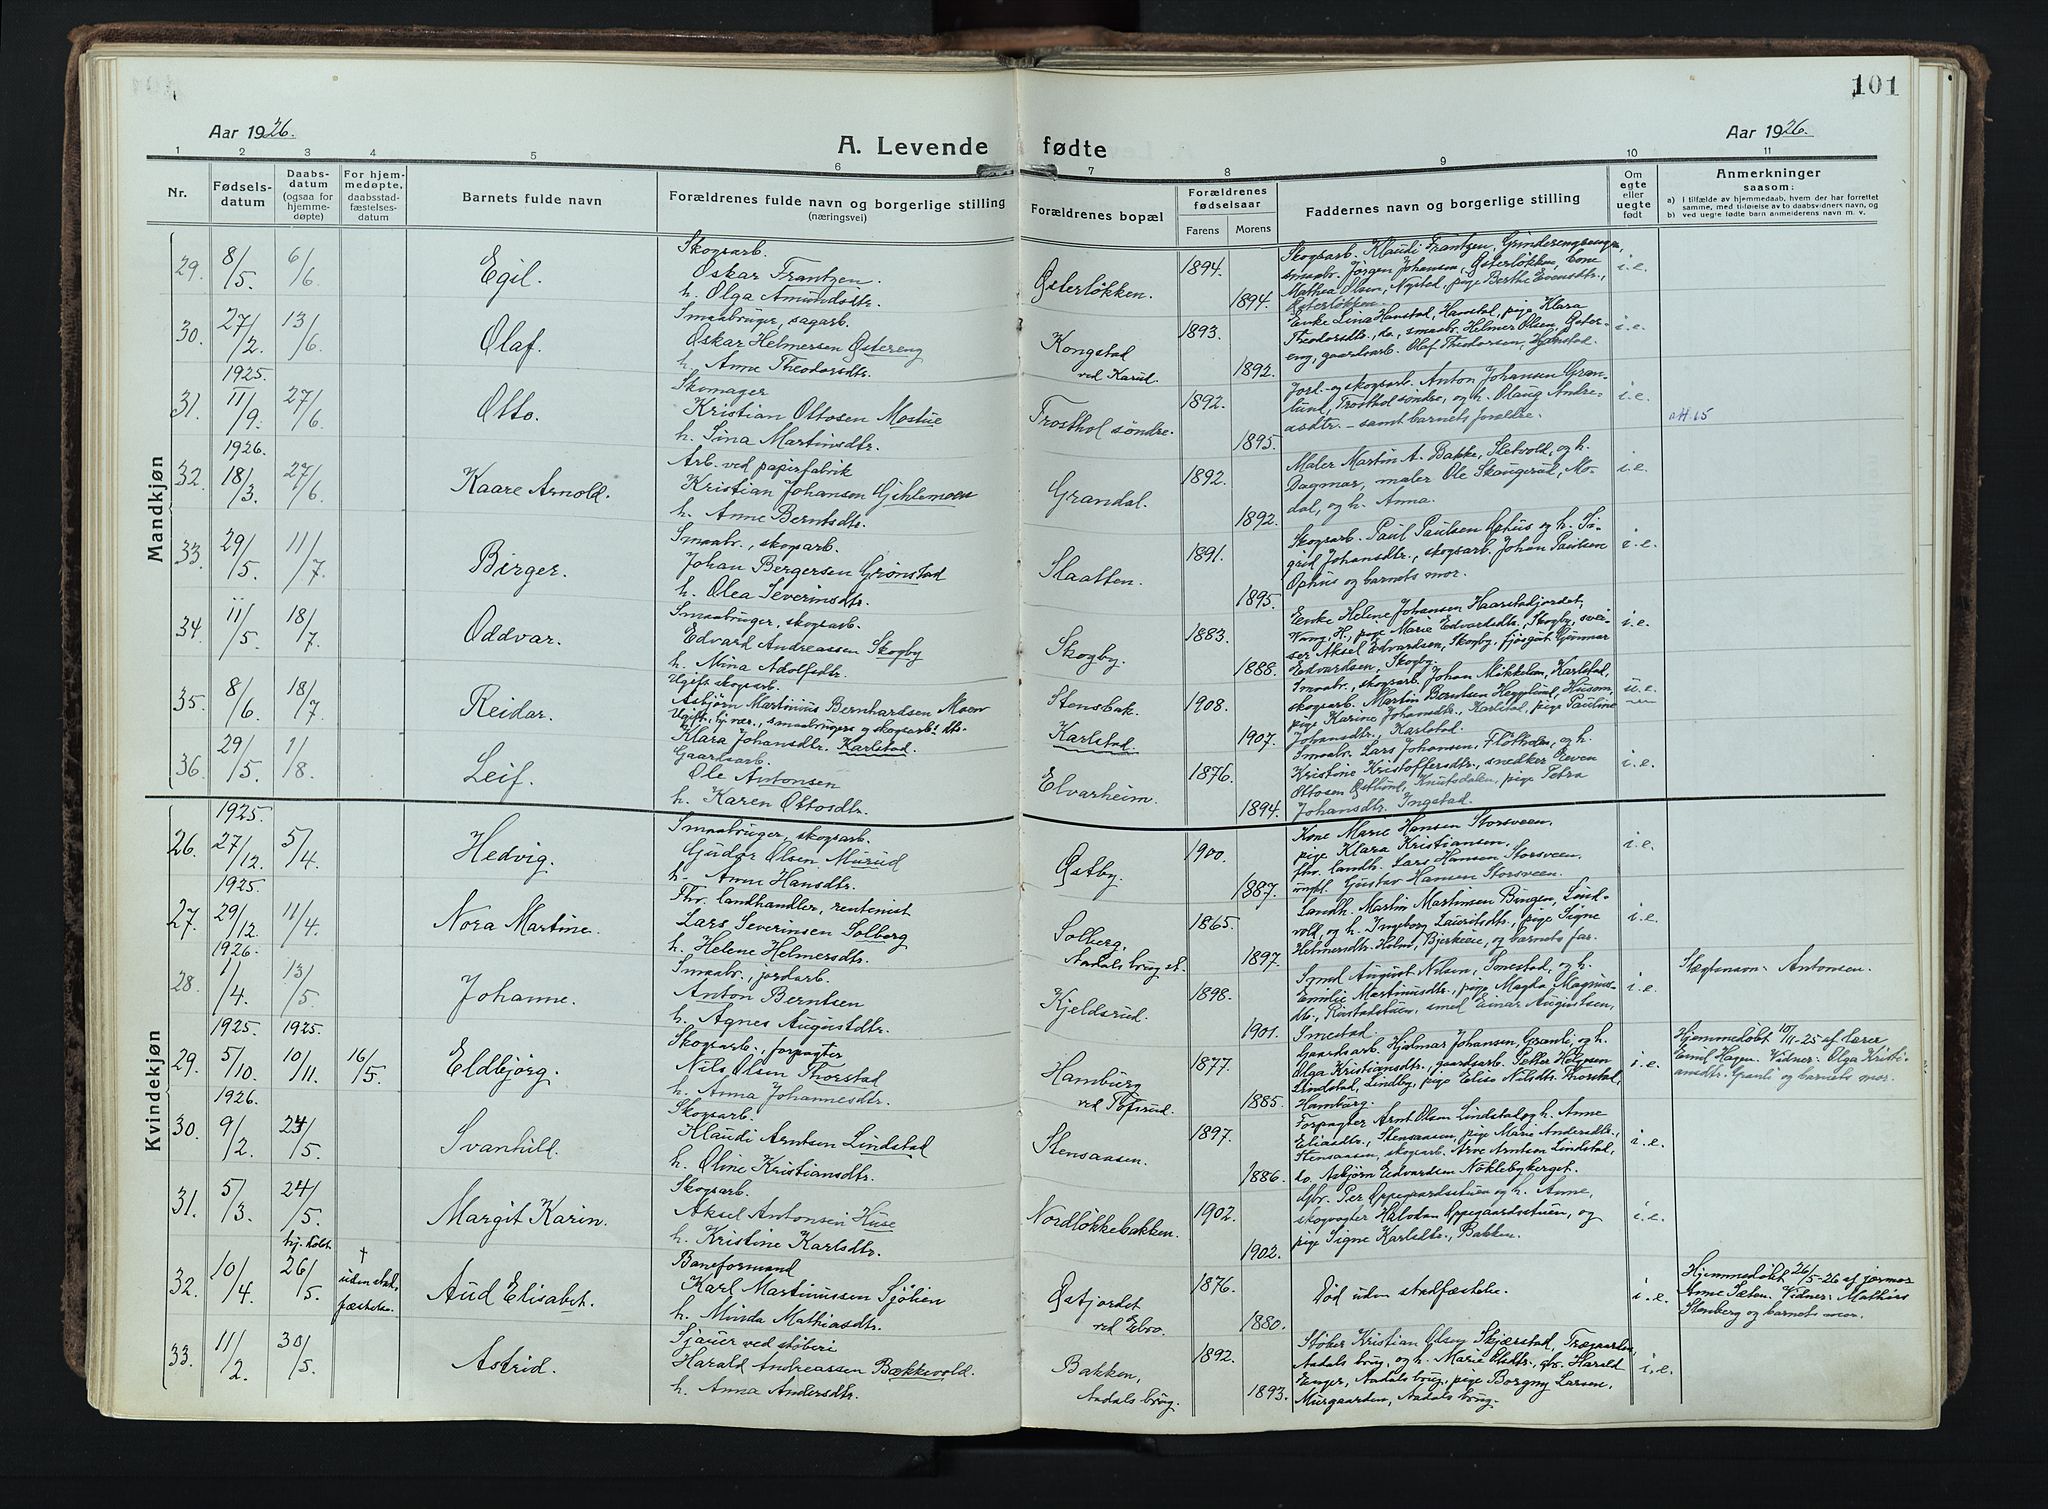 101
Aar 1926.
A. Levende fødte
Aar 1926.
1 2 3 4 5 6 7 8 9 10 11
Nr.
Fødsels-
datum
Daabs-
datum
(ogsaa for
hjemme-
døpte)
For hjem-
medøpte,
daabsstad-
fæstelses-
datum
Barnets fulde navn
Forældrenes fulde navn og borgerlige stilling
(næringsvei)
Forældrenes bopæl
Forældrenes
fødselsaar
Farens Morens
Faddernes navn og borgerlige stilling
Om
egte
eller
uegte
født
Anmerkninger
saasom:
a) I tilfælde av hjemmedaab, hvem der har forrettet
samme, med tilføielse av to daabsvidners navn, og
b) ved uegte fødte barn anmelderens navn m. v.
Mandkjøn
29. 8/5 6/6 Egil.
Skogsarb.
Oskar Frantzen.
h. Olga Amundsdtr.
Østerløkken. 1894. 1894.
Skogsarb. Klaudi Frantzen, Grinderengsengen,
smaabr. Jørgen Johansen, Østerløkken, kone
Mathea Olsen, Nystad, pige Berthe Evensdtr.,
Østerløkken.
i.e.
30. 27/2 13/6 Olaf.
Smaabruger, sagarb.
Oskar Helmersen Østereng
h. Anne Theodorsdtr.
Kongstad
ved Karud.
1893. 1892.
Enke Lina Hanstad, Hanstad, pige Klara
Theodorsdtr., do., smaabr. Helmer Olsen, Øster-
eng, gaardsarb. Olaf Theodorsen, Hanstad.
i.e.
1925.
31. 11/9. 27/6 Otto.
Skomager
Kristian Ottosen Mostue
h. Sina Martinsdtr.
Trosthol søndre. 1892. 1895.
Jord- og skogsarb. Anton Johansen Gran-
lund, Trosthol søndre, og h. Olaug Andre-
asdtr. – samt barnets foreldre.
i.e.
1926.
32. 18/3. 27/6 Kaare Arnold.
Arb. ved papirfabrik
Kristian Johansen Gjihlemoen
h. Anne Berntsdtr.
Grandal. 1892. 1892.
Maler Martin A. Bakke, Sletvold, og h.
Dagmar, maler Ole Skaugerud, Mo-
dal, og h. Anna.
i.e.
33. 29/5. 11/7 Birger.
Smaabr., skogsarb.
Johan Bergersen Grønstad
h. Olea Severinsdtr.
Slaatten. 1891. 1895.
Skogsarb. Paul Paulsen Ophus og h. Si-
grid Johansdtr., skogsarb. Johan Paulsen
Ophus og barnets mor.
i.e.
34. 11/5 18/7. Oddvar.
Smaabruger, skogsarb.
Edvard Andreassen Skogby
h. Mina Adolfsdtr.
Skogby. 1883. 1888.
Enke Helene Johansen Haarstadjordet,
Vang, H., pige Marie Edvardsdtr., Skogby, svei-
ser Aksel Edvardsen, Skogby, fjøsgut Gunnar
Edvardsen, Skogby.
i.e.
35. 8/6 18/7. Reidar.
Ugift skogsarb.
Asbjørn Martinius Bernhardsen Moen
Ugift, hj.vær., smaabrugers og skogsarb. dtr.
Klara Johansdtr. Karlstad.
Stensbak.
Karlstad.
1908. 1907.
Smaabr., skogsarb. Johan Mikkelsen, Karlstad,
skogsarb. Martin Berntsen Hegglund, Husom,
pige Karine Johansdtr., Karlstad, pige Pauline
Johansdtr., Karlstad.
u.e.
36. 29/5. 1/8. Leif.
Gaardsarb.
Ole Antonsen
h. Karen Ottosdtr.
Elvarheim. 1876. 1894.
Smaabr. Lars Johansen, Fløtholen, og h.
Kristine Kristoffersdtr., snedker Even
Ottosen Østlund, Knutsdalen, pige Petra
Johansdtr. Ingstad.
i.e.
Kvindekjøn
1925.
26. 27/12. 5/4. Hedvig.
Smaabruger, skogsarb.
Gudor Olsen Murud
h. Anne Hansdtr.
Østby. 1900. 1887.
Kone Marie Hansen Storsveen,
pige Klara Kristiansen,
fhv. landh. Lars Hansen Storsveen,
ungkl. Gustav Hansen Storsveen.
i.e.
1925.
27. 29/12. 11/4. Nora Martine.
Fhv. landhandler, rentenist
Lars Severinsen Solberg
h. Helene Helmersdtr.
Solberg,
Aadals brug st.
1865. 1897.
Landh. Martin Martinsen Bingen, Lind-
vold, og h. Ingeborg Lauritsdtr., pige Signe
Helmersdtr. Holm, Bjerkeeie, og barnets far.
i.e.
1926.
28. 1/4. 13/5 Johanne.
Smaabr., jordarb.
Anton Berntsen
h. Agnes Augustdtr.
Kjeldsrud. 1898. 1901.
Smed August Nilsen, Smestad, og h.
Emilie Martinusdtr., pige Magda Magnus-
dtr., Rustadstuen, smed Einar Augustsen,
Smestad.
i.e.
Slægtsnavn: Antonsen.
1925. 1925.
29. 5/10. 10/11. 16/5. Eldbjørg.
Skogsarb., forpagter
Nils Olsen Thorstad
h. Anna Johannesdtr.
Hamburg
ved Tofsrud.
1877. 1885.
Gaardsarb. Hjalmar Johansen, Granli, og h.
Olga Kristiansdtr., gaardsarb. Petter Helgesen
Lindstad, Lindby, pige Elise Nilsdtr. Thorstad,
Hamburg.
i.e.
Hjemmedøbt 10/11-25 af lærer
Emil Hagen. Vidner: Olga Kristi-
ansdtr. Granli og barnets mor.
1926.
30. 9/2 24/5. Svanhild.
Skogsarb.
Klaudi Arntsen Lindstad
h. Oline Kristiansdtr.
Stensaasen. 1897. 1886.
Forpagter Arnt Olsen Lindstad og h. Anne
Eliasdtr., Stensaasen, pige Marie Andersdtr.,
Stensaasen, skogsarb. Arve Arntsen Lindstad,
do. Asbjørn Edvardsen Nøklebyberget.
i.e.
31. 5/3. 24/5. Margit Karin.
Skogsarb.
Aksel Antonsen Huse
h. Kristine Karlsdtr.
Nordløkkebakken. 1902. 1902.
Gbr. Per Oppegaardsstuen og h. Anne,
skogvogter Halvdan Oppegaardsstuen, og
pige Signe Karlsdtr., Bakken.
i.e.
32. 10/4. hj. døbt 26/5. † uden stad-
fæstelse. Aud Elisabet.
Baneformand
Karl Martiniussen Sjølien
h. Minda Mathiasdtr.
Østjordet
ved Ebro.
1876. 1880.
Død uden stadfæstelse.
i.e.
Hjemmedøbt 26/5-26 af jormor
Anne Sæten. Vidner: Mathias
Stenberg og barnets mor.
33. 11/2 30/5. Astrid.
Sjauer ved støberi
Harald Andreassen Bækkevold.
h. Anna Andersdtr.
Bakken,
Aadals brug.
1892. 1893.
Støber Kristian Olsen Skjærstad, Trægaarden,
Aadals brug, og h. Marie Olsdtr., gbr. Harald
Enger, Aadals brug, pige Borgny Larsen,
Murgaarden, Aadals brug.
i.e.